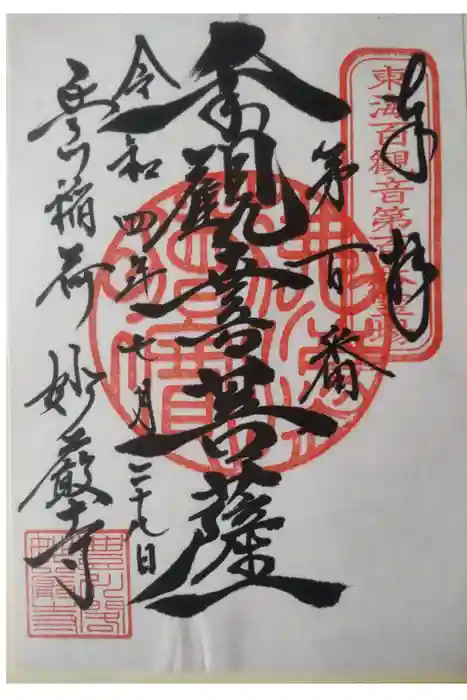 奉拝
東海百観音第百番霊場
第百番
千手觀音菩薩
令和四年七月二十九日
豊川稲荷 妙厳寺